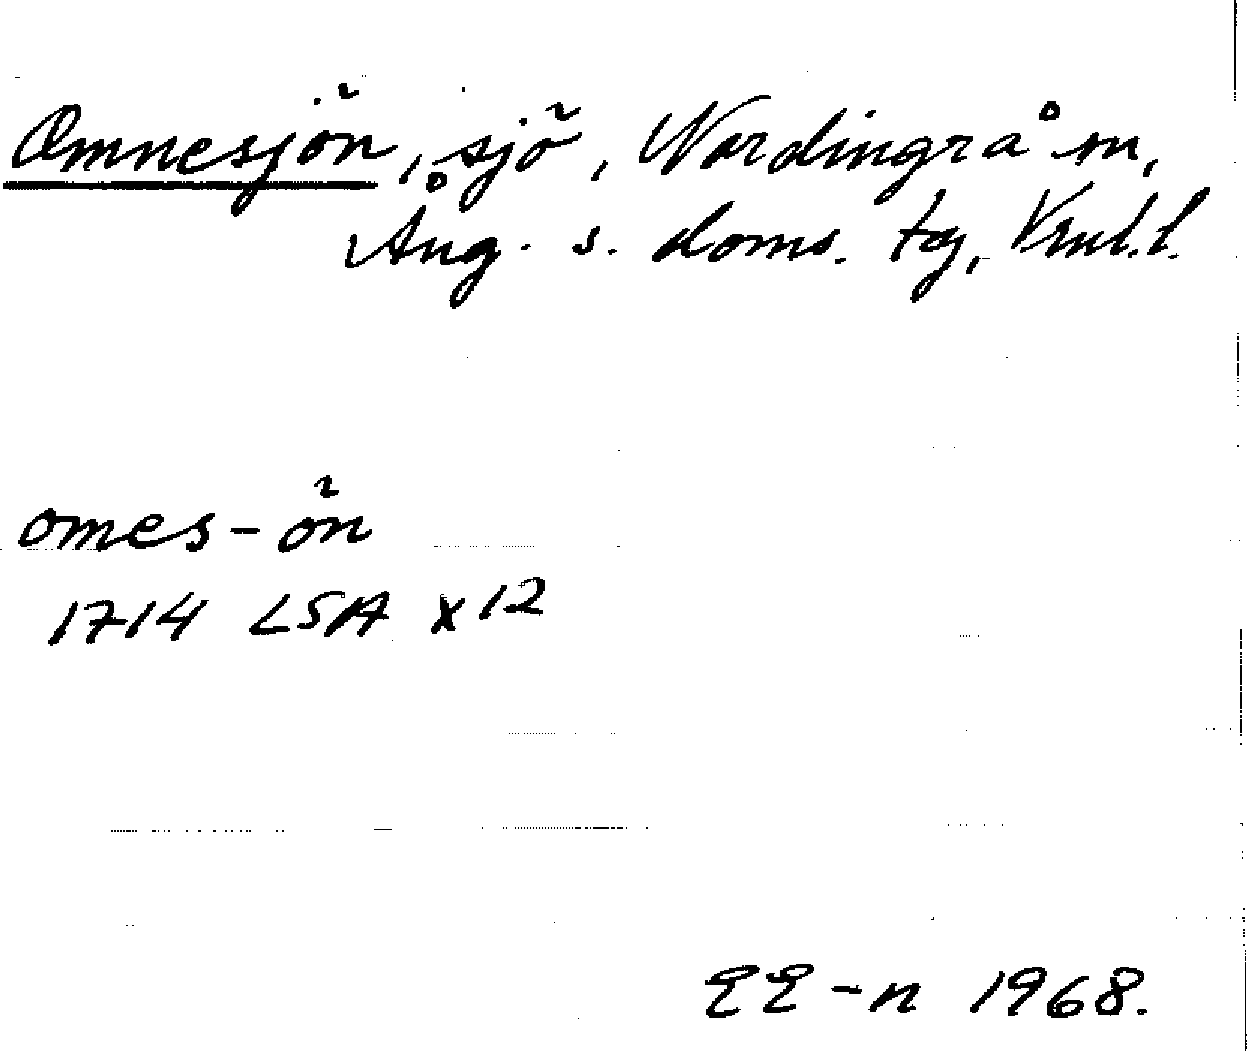 Omnesjön, sjö, Nordingrå sn,
Ång. s. doms. tg, Vnl. l.
omes-ön
1714 LSA X 12
EE-n 1968.